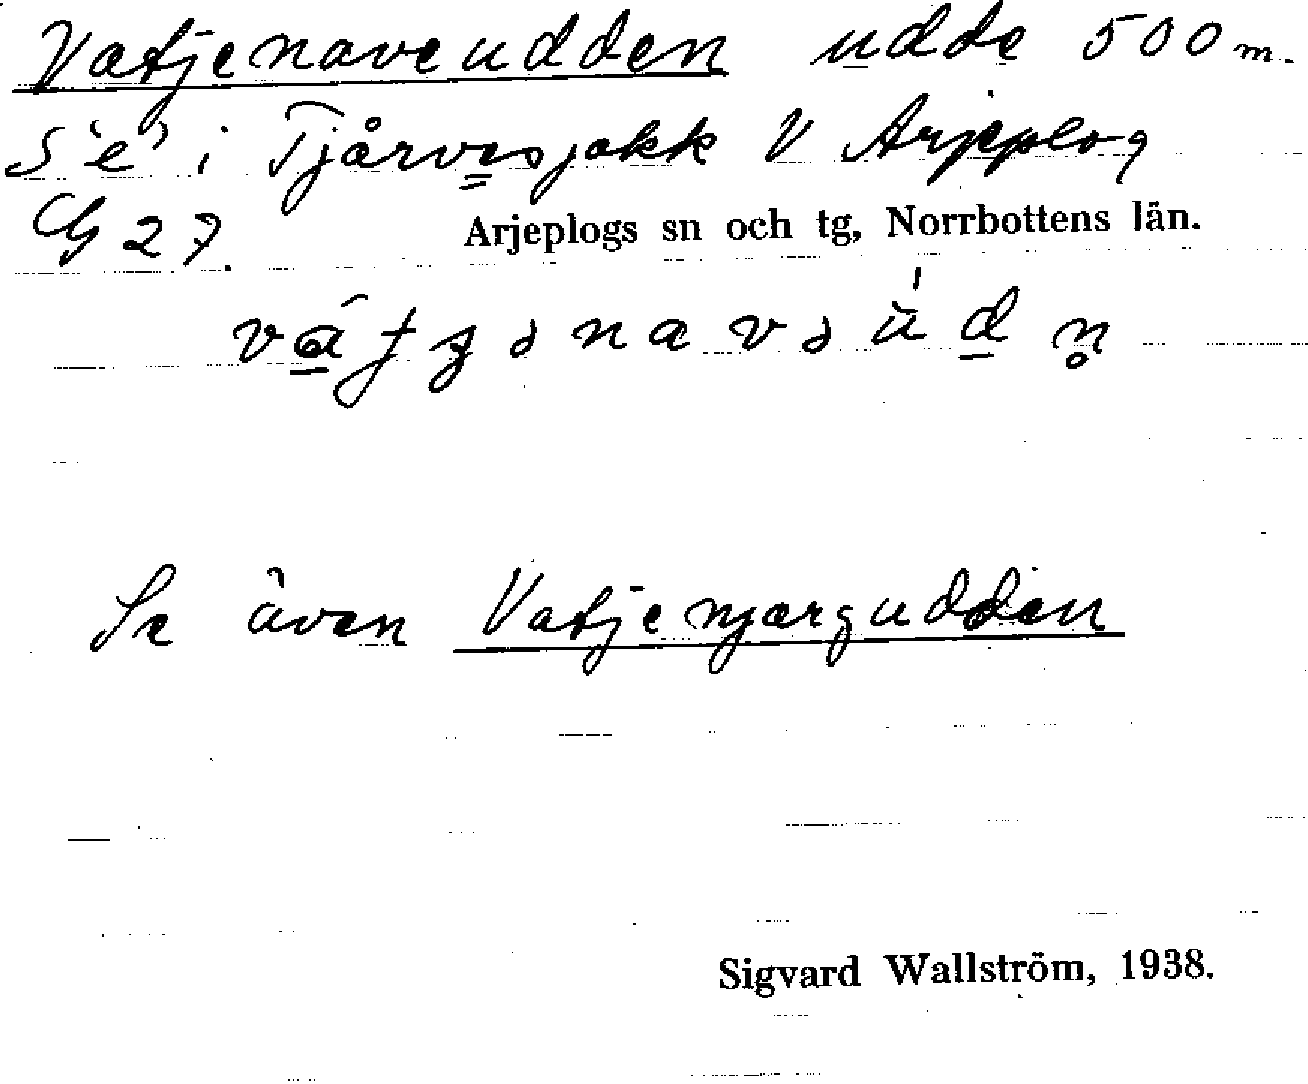 Vatjenaveudden udde 500 m.
S 'e' i Tjårvesjokk V Arjeplog
G 27. Arjeplogs sn och tg, Norrbottens län.
Se även Vatjenjargudden
Sigvard Wallström, 1938.